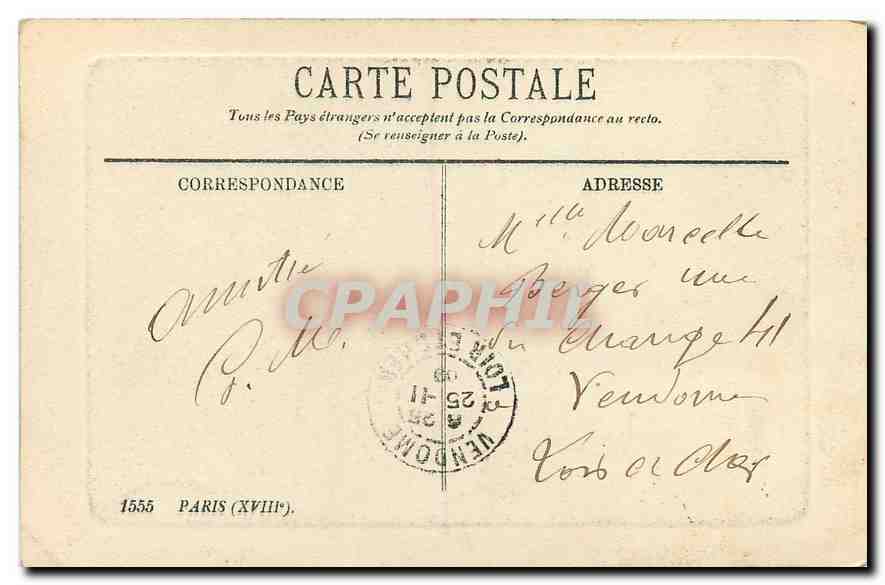 CARTE POSTALE
Tous les Pays étrangers n'acceptent pas la Correspondance au recto.
(Se renseigner à la Poste).
CORRESPONDANCE
ADRESSE
Amitié
G. M.
Mlle Marcelle
Berger rue
du Change 41
Vendome
Loir et Cher
CPAPHIL
VENDOME
LOIR ET CHER
25
25 - 11
09
1555 PARIS (XVIIIe).